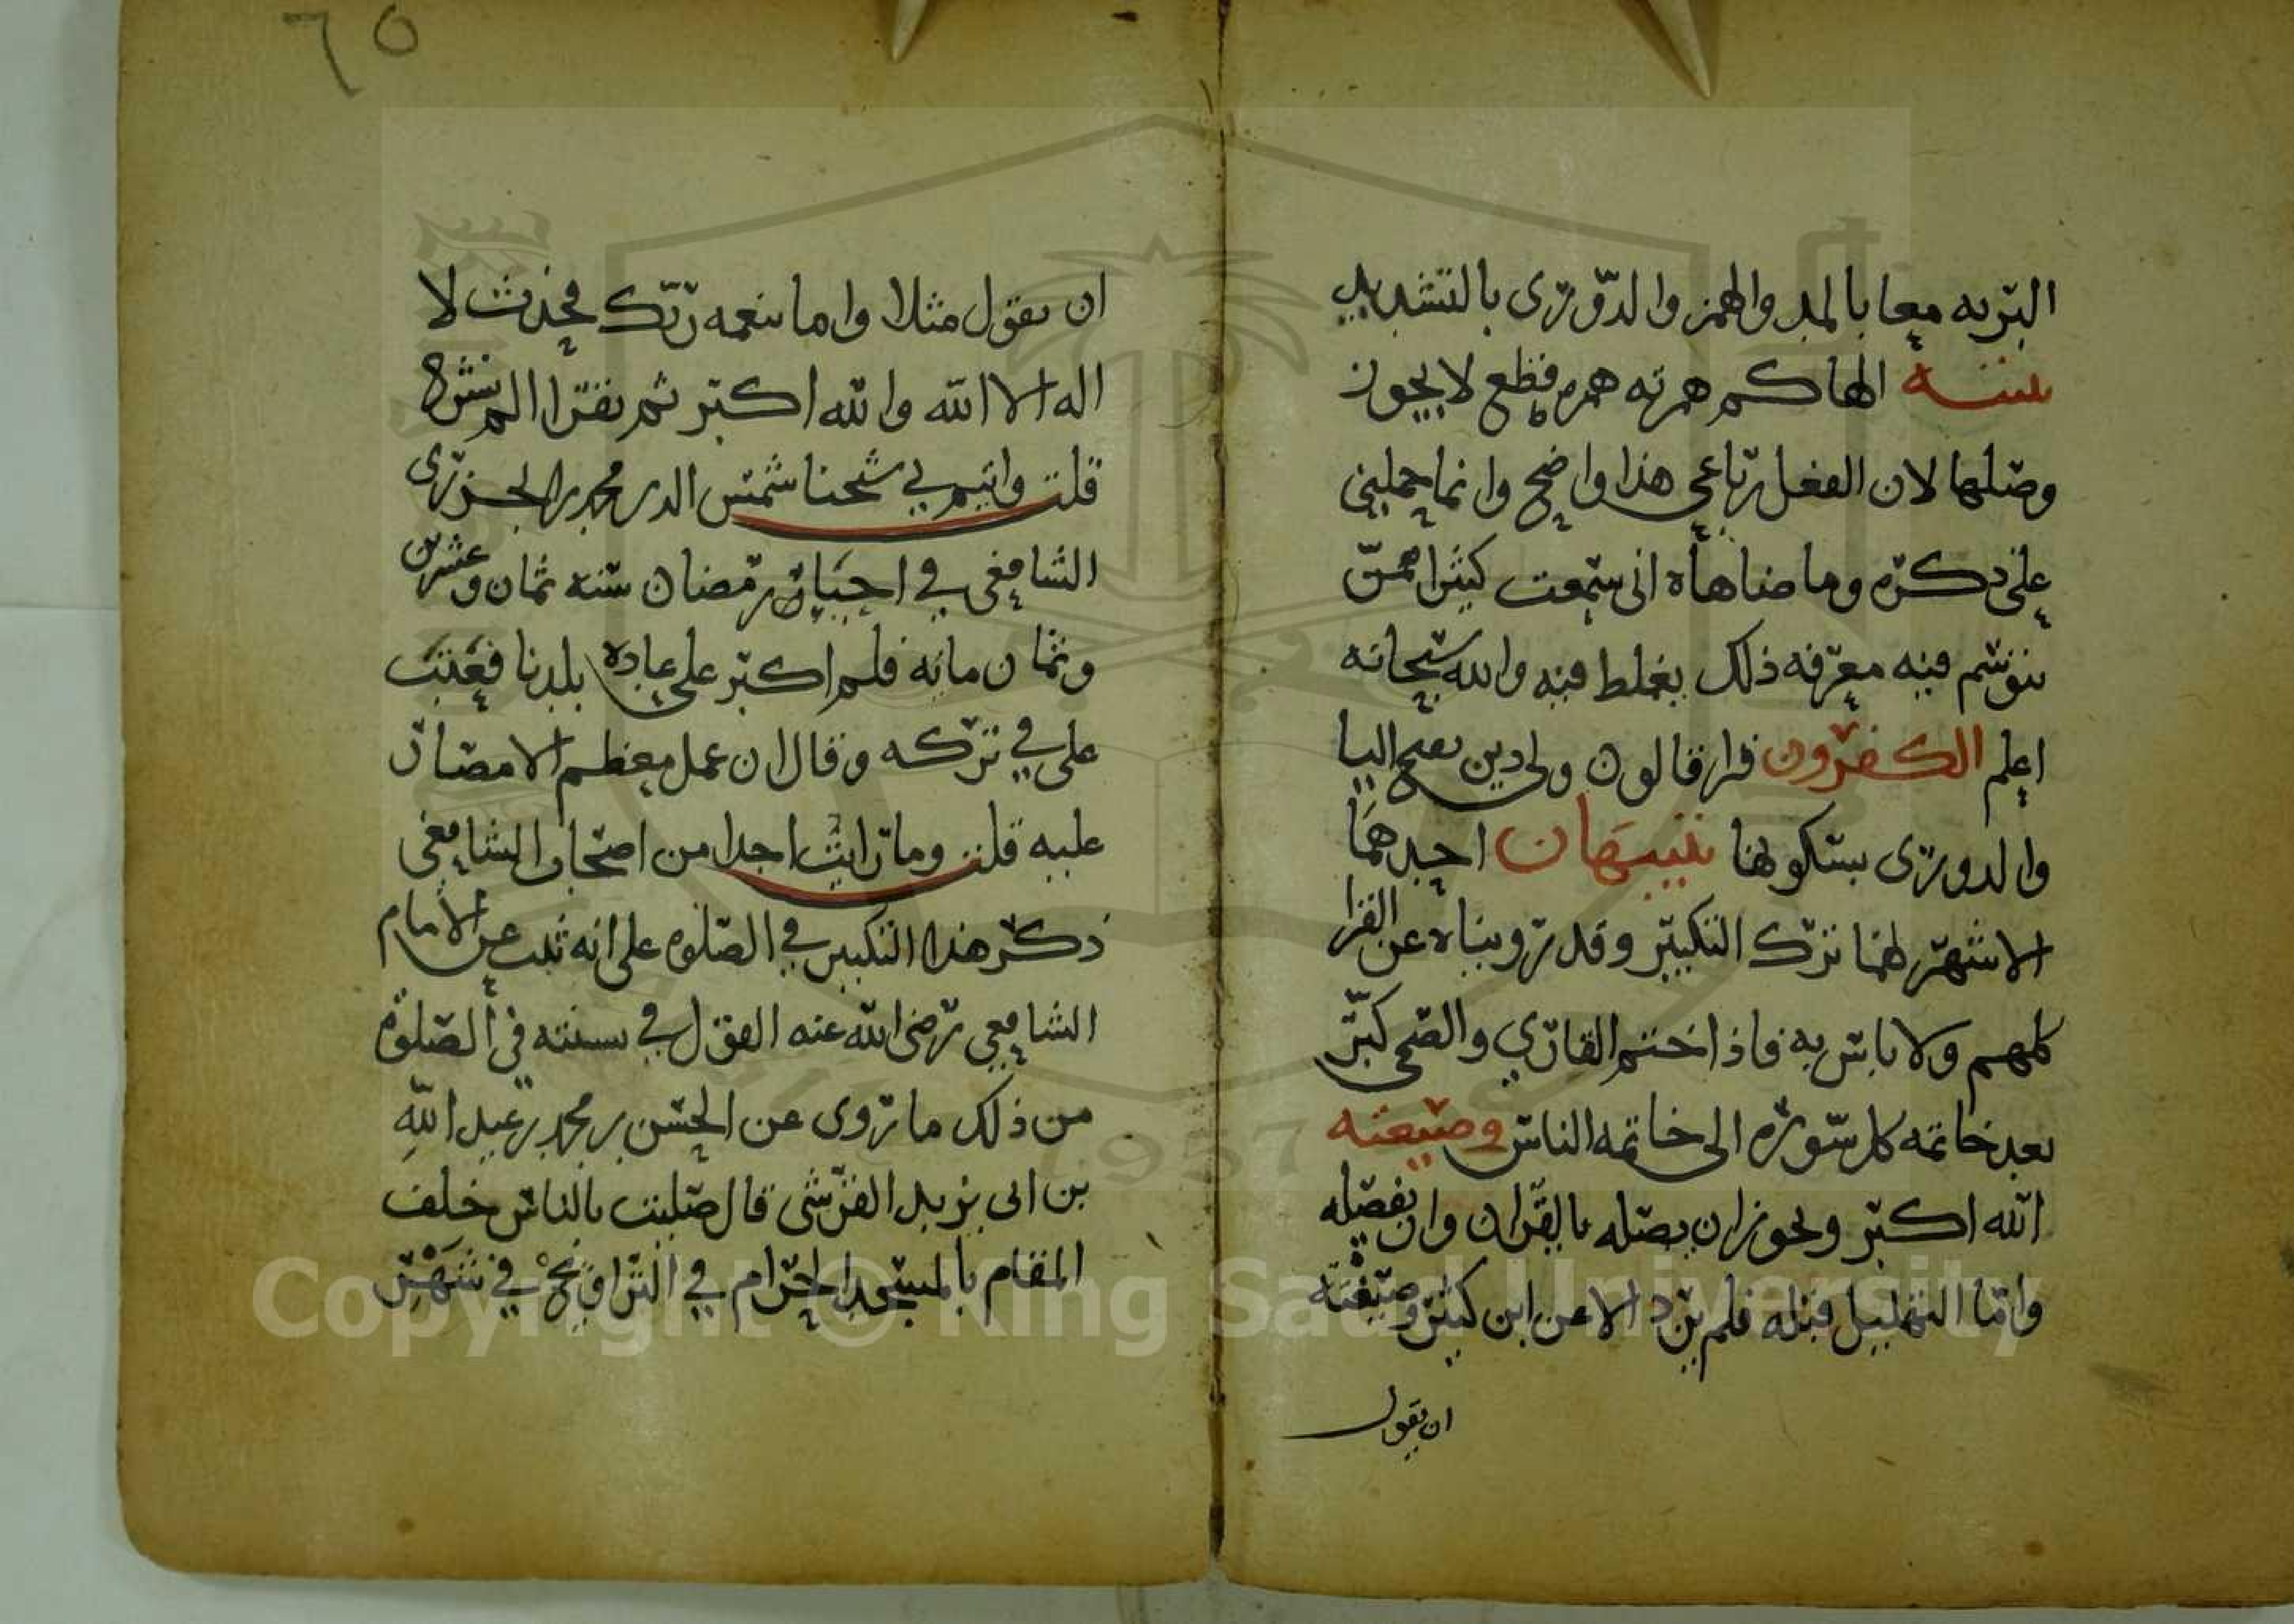 البريه معا بالمد والهمز والدوري بالتشديد
تنبيه الهاكم همزته همزه قطع لا يجوز
وصلها لان الفعل رباعي هذا واضح وانما حملني
على ذكره وما ضاهاه اني سمعت كثيرا ممن
نتوسم فيه معرفه ذلك يغلط فيه والله سبحانه
اعلم الكفرون قرا قالون ولي دين بفتح اليا
والدوري بسكونها تنبيهان احدهما
الاشهر لهما ترك التكبير وقد رويناه عن القرا
كلهم ولا باس به فاذا ختم القاري والضحى كبر
بعد خاتمه كل سوره الى خاتمه الناس وصيغته
الله اكبر ويجوز ان يصله بالقران وان يفصله
واما التهليل قبله فلم يرد الا عن ابن كثير وصيغته
ان يقول
٦٥
ان يقول مثلا واما بنعمه ربك فحدث لا
اله الا الله والله اكبر ثم تقرا الم نشرح
قلت واتيم بي شيخنا شمس الدين محمد بن الجزري
الشافعي في احيا رمضان سنه ثمان وعشرين
وثمان مائه فلم اكبر على عاده بلدنا فعتب
علي في تركه وقال ان عمل معظم الامصار
عليه قلت وما رايت احدا من اصحاب الشافعي
ذكر هذا التكبير في الصلوه على انه ثبت عن الامام
الشافعي رضى الله عنه القول في سنته في الصلوه
من ذلك ما روى عن الحسن بن محمد بن عبد الله
بن ابى يزيد القرشى قال صليت بالناس خلف
المقام بالمسجد الحرام في التراويح في شهر
1957
Copyright © King Saud University